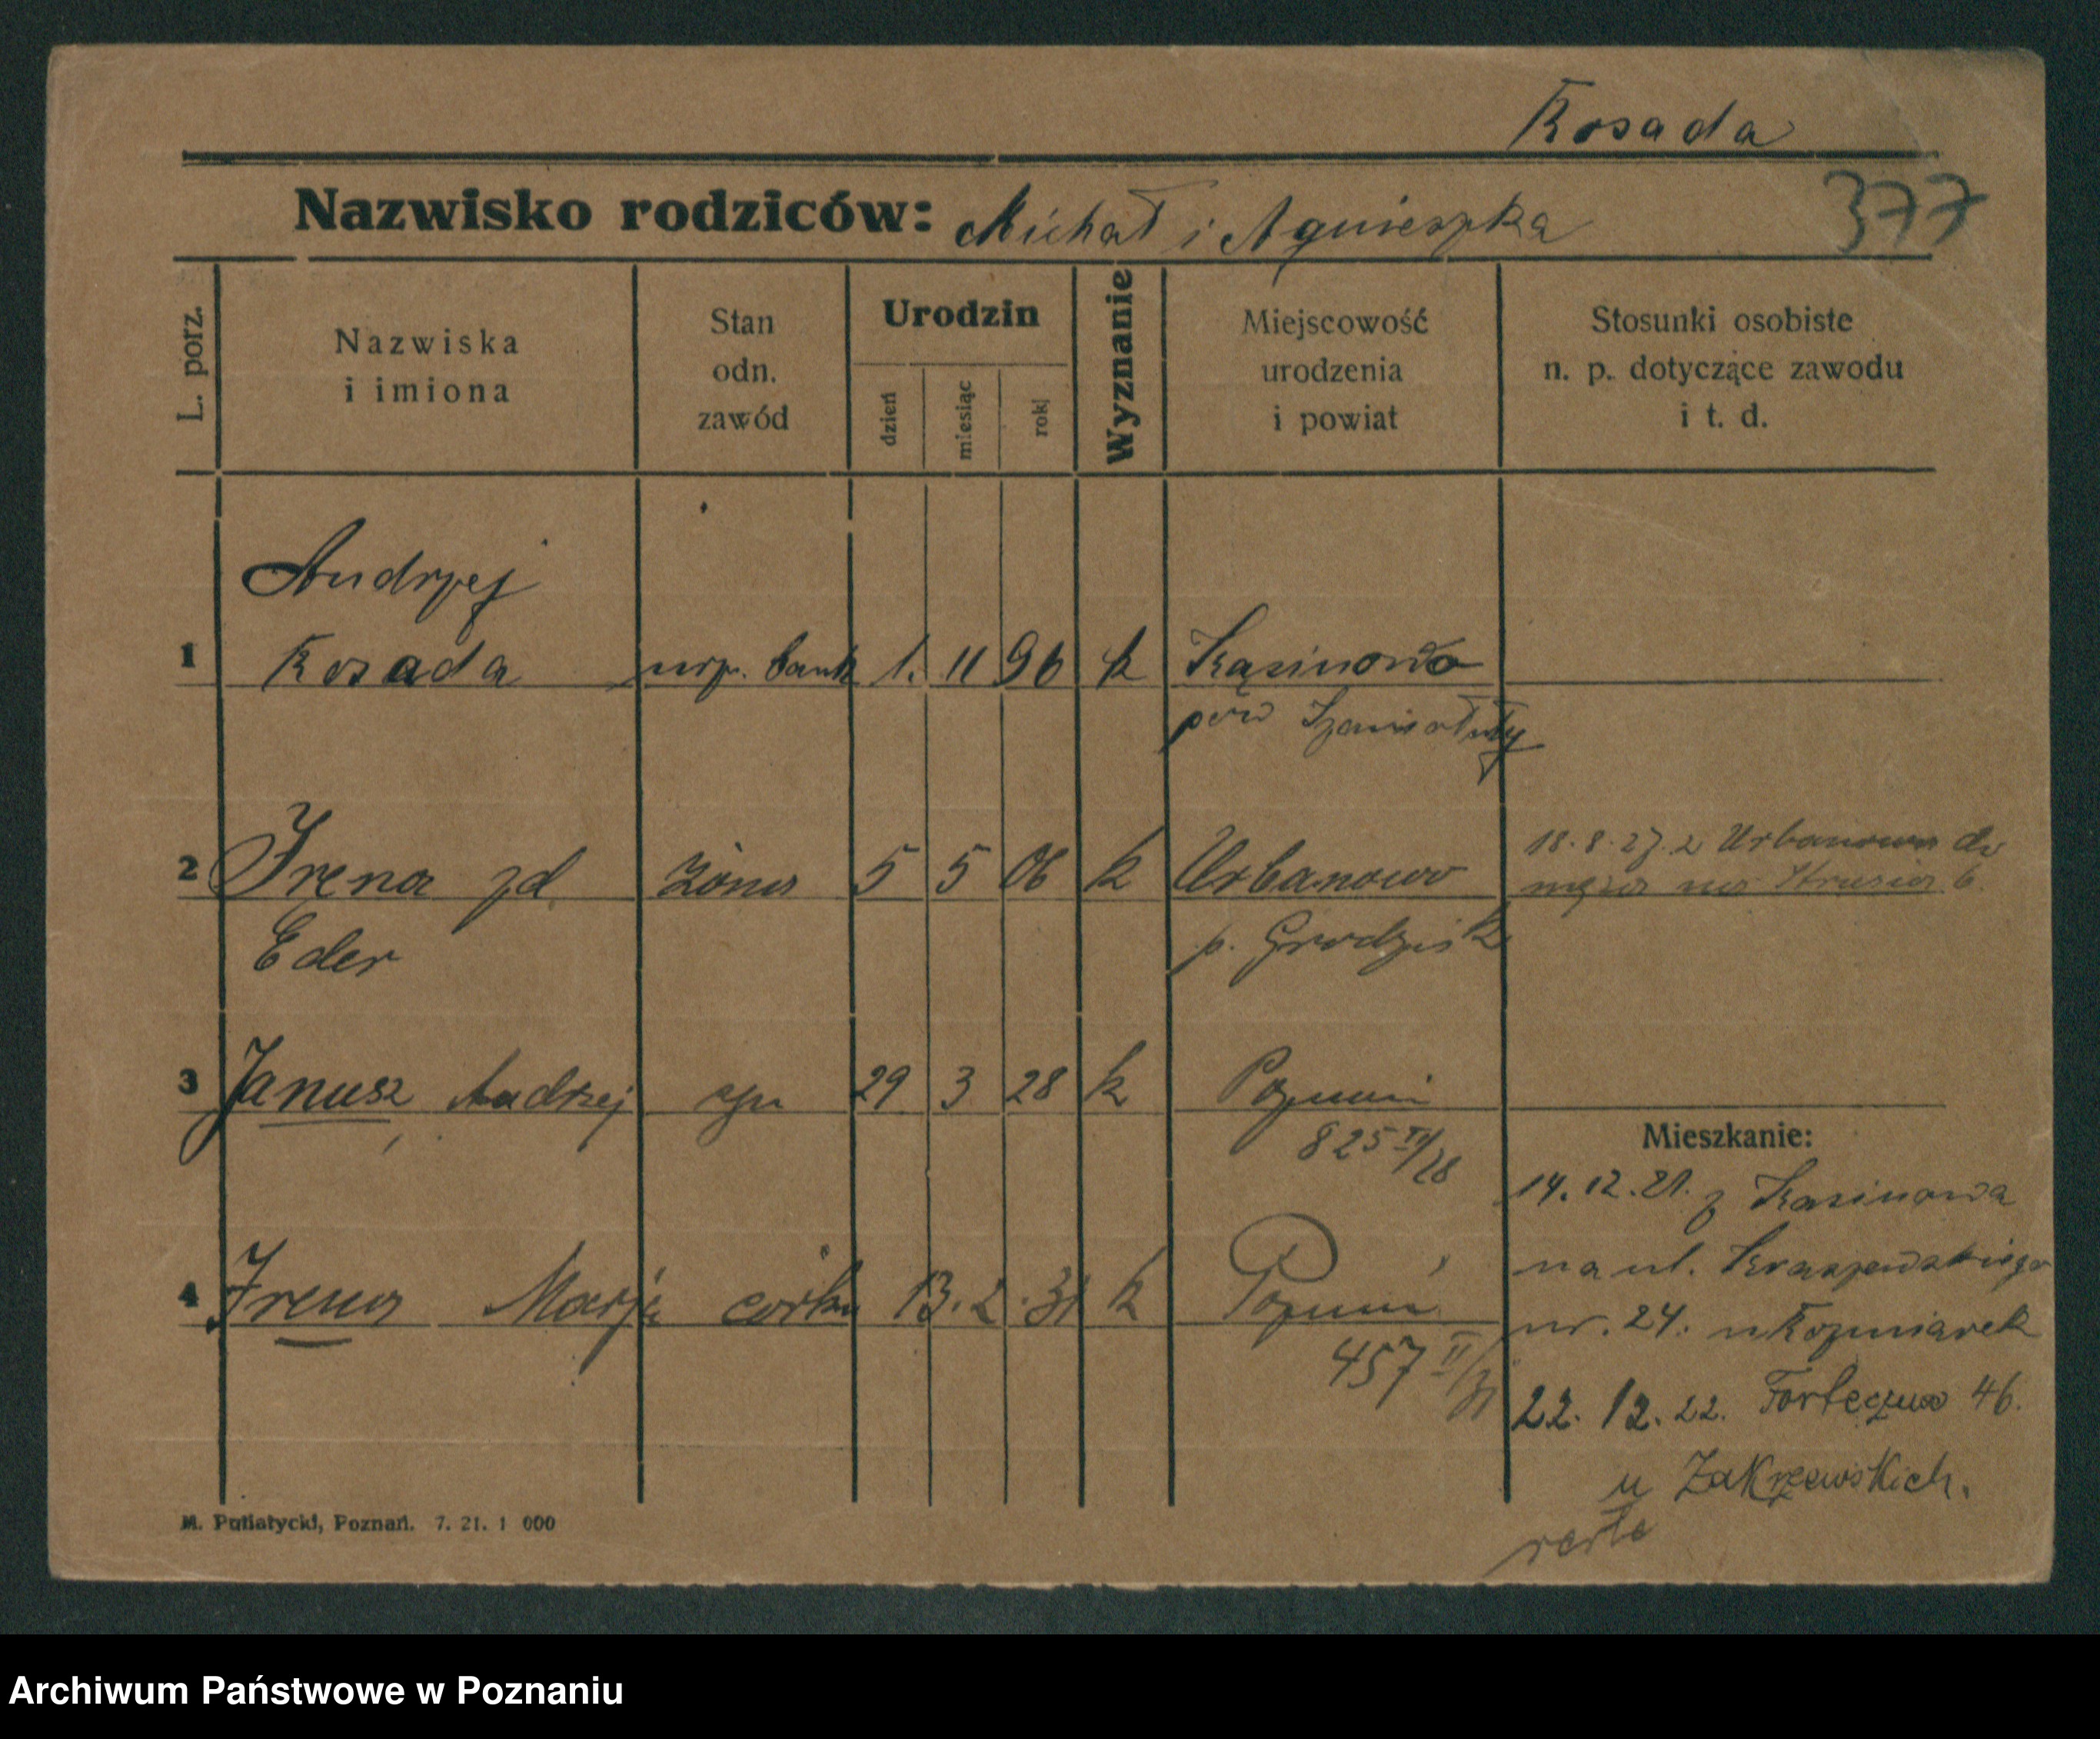 Rosada
Nazwisko rodziców: Michał i Agnieszka
377
L. porz.
Nazwiska
i imiona
Stan
odn.
zawód
Urodzin
dzień
miesiąc
rok
Wyznanie
Miejscowość
urodzenia
i powiat
Stosunki osobiste
n. p. dotyczące zawodu
i t. d.
Andrzej
1 Rosada urz. bank 1. 11 96 k Kąsinowo
pow Szamotuły
2 Irena zd żona 5 5 06 k Urbanowo
Eder
p. Grodzisk
18.8.27. z Urbanowa do
męża na Strusia 6.
3 Janusz Andrzej syn 29 3 28 k Poznań
825 IV/28
4 Irena Marja córka 13. 2. 31 k Poznań
457 II/31
Mieszkanie:
14. 12. 21. z Kasinowa
na ul. Kraszewskiego
nr. 24. u Kozmiarek
22. 12. 22. Forteczna 46.
u Zakrzewskich.
M. Putiatycki, Poznań. 7. 21. 1 000
Archiwum Państwowe w Poznaniu